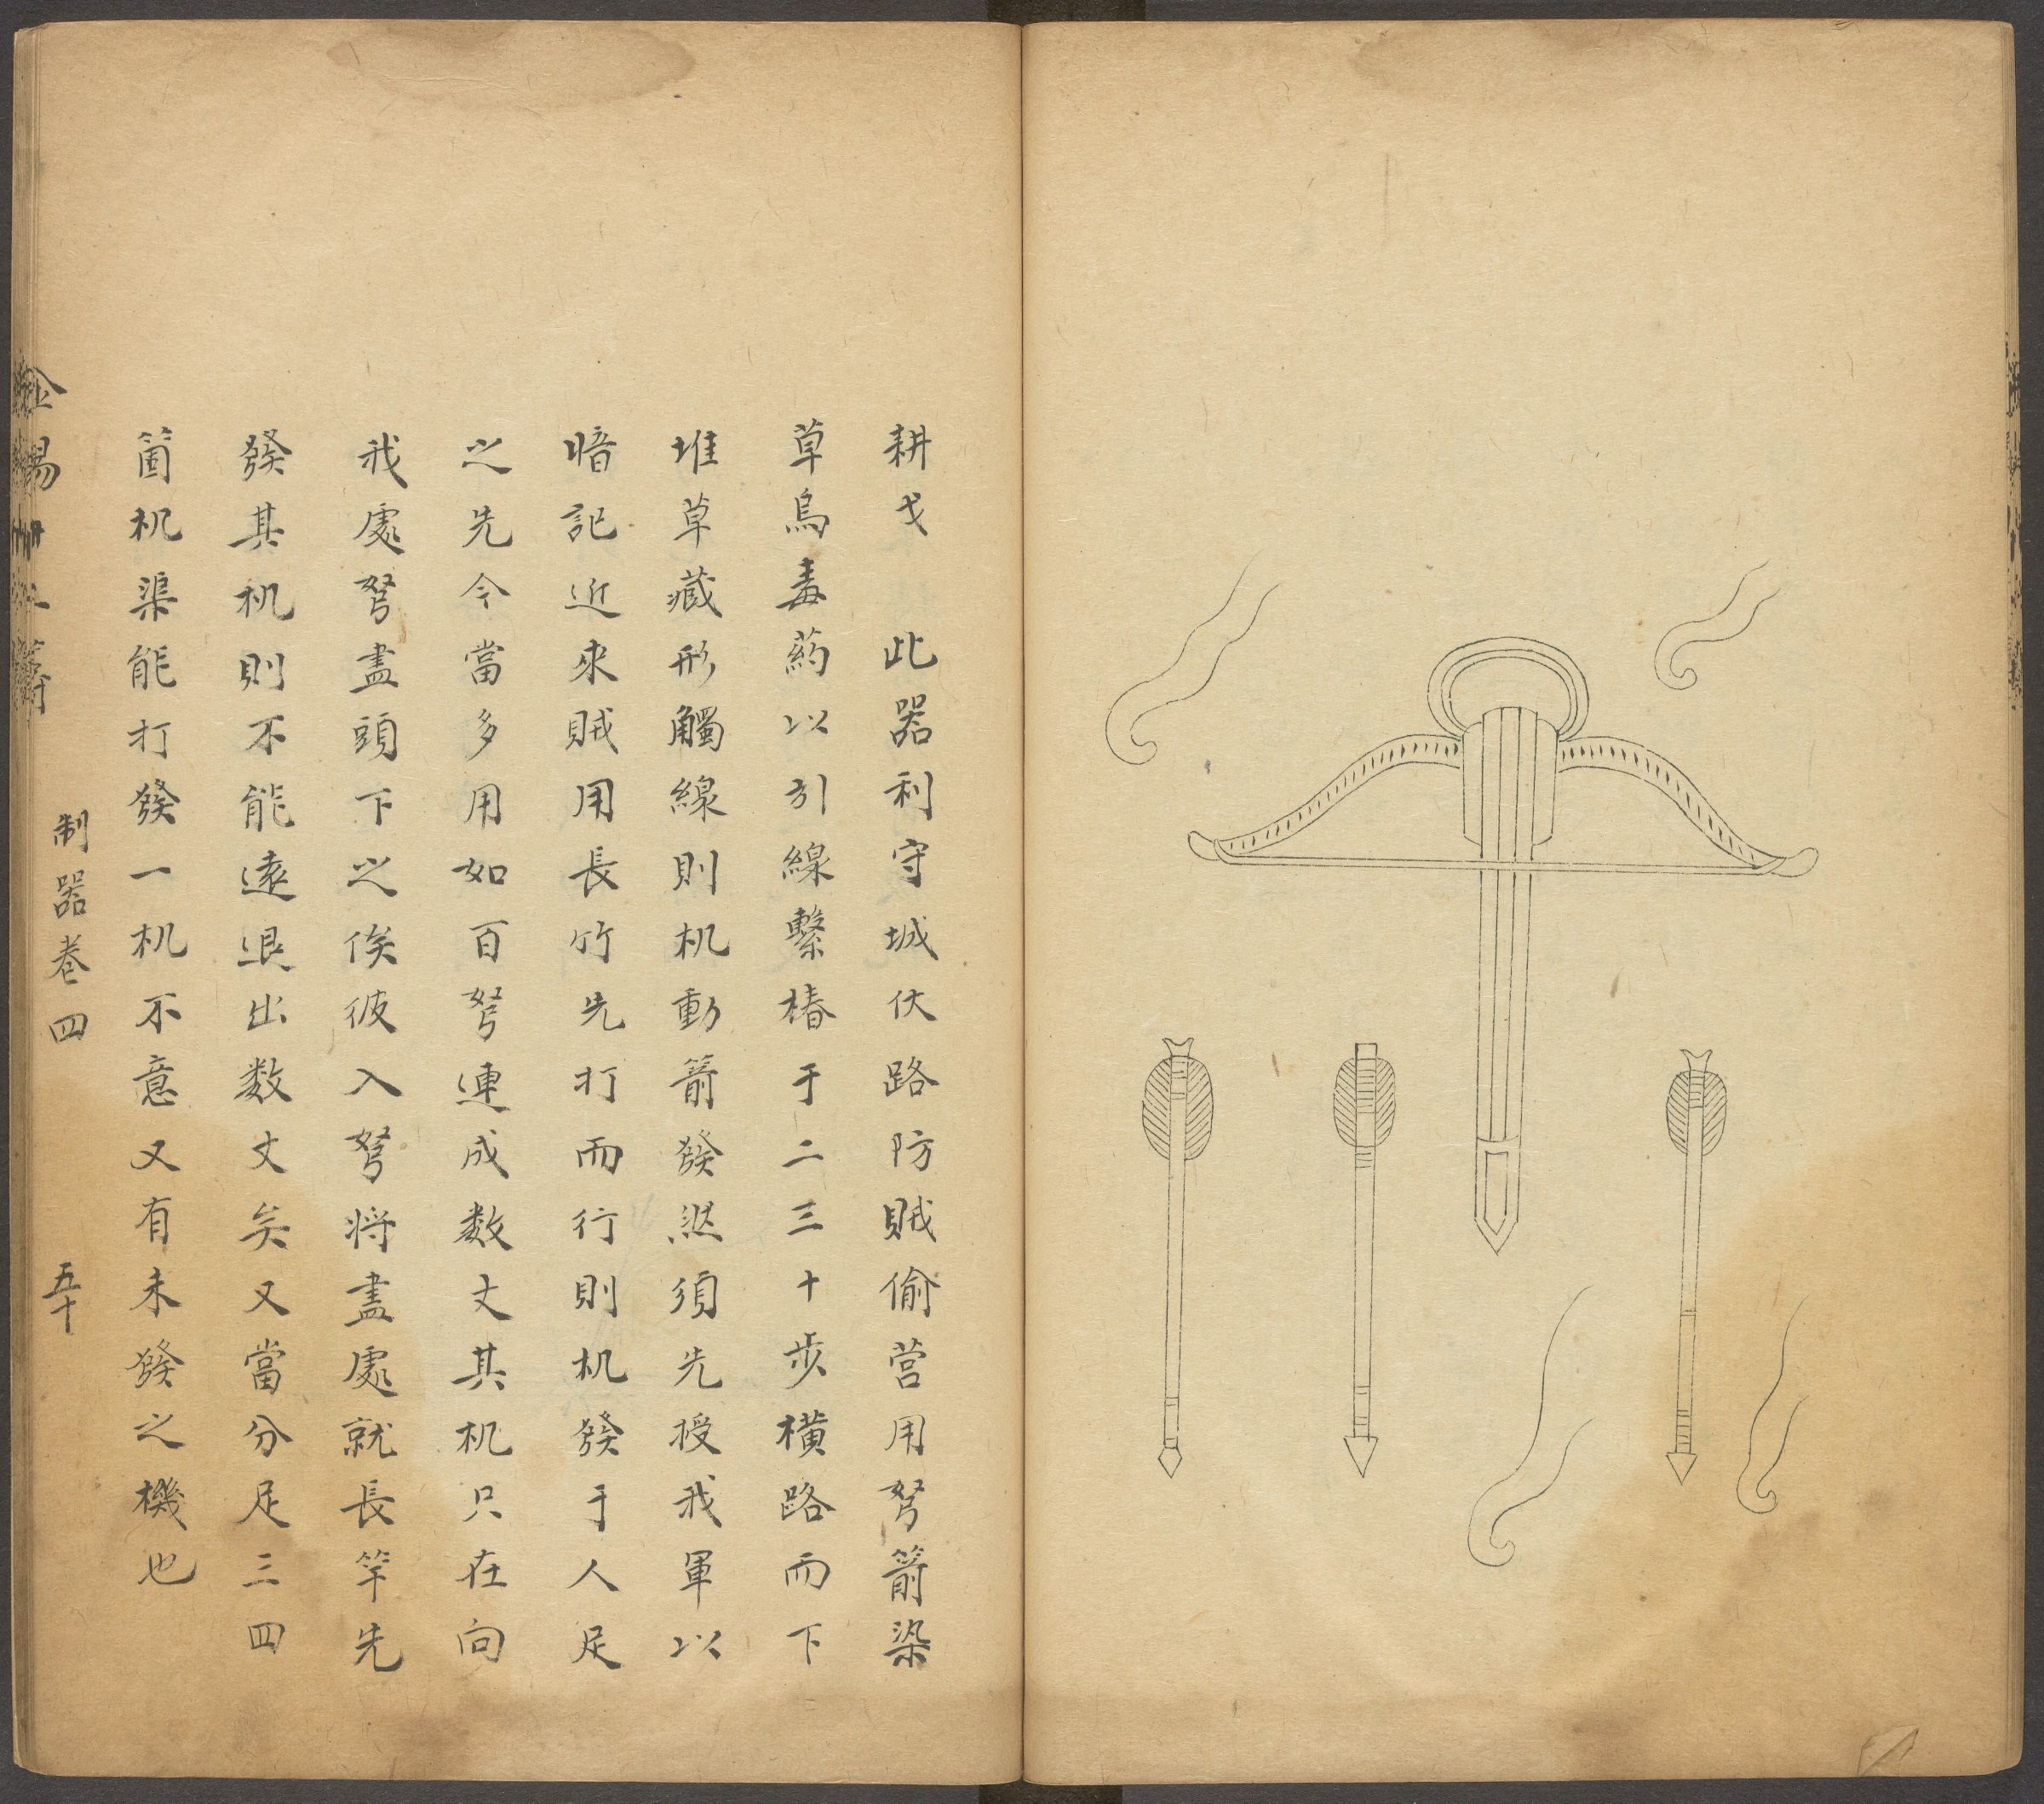 耕戈　此器利守城伏路防賊偷营用弩箭染
草烏毒药以引線繫椿于二三十步横路而下
堆草藏形觸線則机動箭發然須先授我軍以
暗記近來賊用長竹先打而行則机發于人足
之先今當多用如百弩連成数丈其机只在向
我處弩盡頭下之俟彼入弩将盡處就長竿先
發其机則不能遠退出数丈矣又當分足三四
箇机渠能打發一机不意又有未發之機也
制器卷四
五十